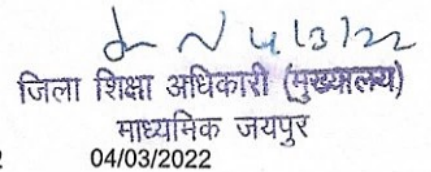 4/3/22
जिला शिक्षा अधिकारी (मुख्यालय)
माध्यमिक जयपुर
2 04/03/2022